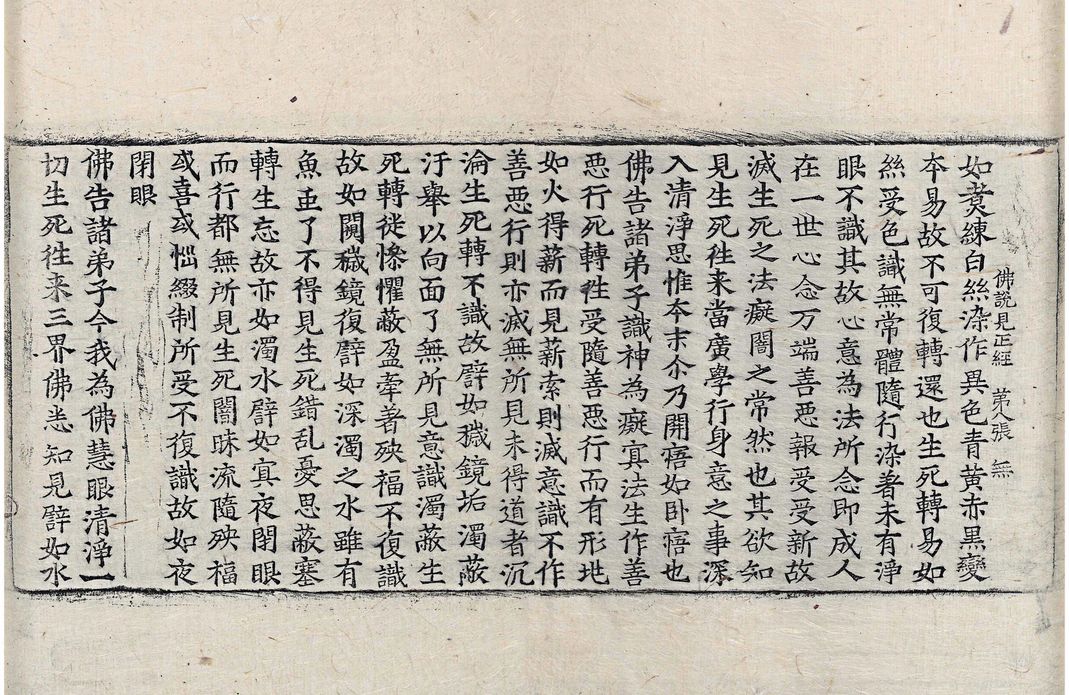 佛說見正經　第八張　無
如煑練白絲染作異色青黃赤黒變
夲易故不可復轉還也生死轉易如
絲受色識無常體隨行染著未有淨
眼不識其故心意為法所念即成人
在一世心念万端善惡報受受新故
滅生死之法癡闇之常然也其欲知
見生死往来當廣學行身意之事深
入清淨思惟夲末尒乃開寤如卧寤也
佛告諸弟子識神為癡㝠法生作善
惡行死轉往受隨善惡行而有形地
如火得薪而見薪索則滅意識不作
善惡行則亦滅無所見未得道者沉
淪生死轉不識故譬如穢鏡垢濁蔽
汙舉以向面了無所見意識濁蔽生
死轉徙慘懼蔽盈牽著殃福不復識
故如闚穢鏡復譬如深濁之水雖有
魚䖝了不得見生死錯乱憂思蔽塞
轉生忘故亦如濁水譬如㝠夜閉眼
而行都無所見生死闇昧流隨殃福
或喜或惱綴制所受不復識故如夜
閉眼
佛告諸弟子今我為佛慧眼清淨一
切生死往来三界佛悉知見譬如水